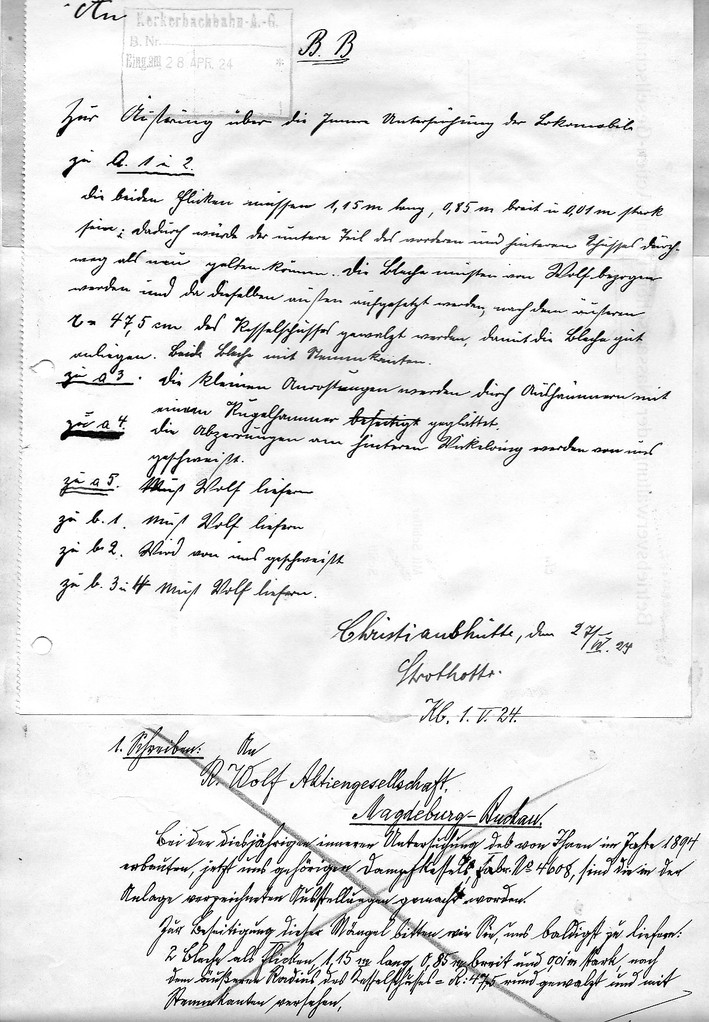 An
Kerkerbachbahn-A.-G.
B. Nr.
Eing. am 28 APR. 24 *
B. B
Zur Äußerung über die Innere Untersuchung der Lokomobile
zu A. 1 u 2.
die beiden Flicken müssen 1,15 m lang, 0,85 m breit u 0,01 m stark
sein; dadurch würde der untere Teil des vorderen und hinteren Schusses durch-
weg als neu gelten können. Die Bleche müßten von Wolf bezogen
werden und da dieselben außen aufgesetzt werden, nach dem äußeren
r = 47,5 cm des Kesselschusses gewalzt werden, damit die Bleche gut
anliegen. Beide Bleche mit Stemmkanten.
zu a 3. die kleinen Anrostungen werden durch Aushämmern mit
einem Kugelhammer beseitigt geglättet.
zu a 4. die Abzerrungen am hinteren Winkelring werden von uns
geschweißt.
zu a 5. Muß Wolf liefern
zu b. 1. Muß Wolf liefern
zu b 2. Wird von uns geschweißt
zu b. 3 u 4 Muß Wolf liefern.
Christianshütte, den 27/IV. 24
Strothotte.
Kb. 1. V. 24.
1. Schreiben: An
R. Wolf Aktiengesellschaft,
Magdeburg-Buckau
Bei der diesjährigen inneren Untersuchung des von Ihnen im Jahre 1894
erbauten, jetzt uns gehörigen Dampfkessels, Fabr. No 4608, sind die in der
Anlage verzeichneten Ausstellungen gemacht worden.
Zur Beseitigung dieser Mängel bitten wir Sie, uns baldigst zu liefern:
2 Bleche als Flicken, 1,15 m lang, 0,85 m breit und 0,01 m stark, nach
dem äußeren Radius des Kesselschusses = R: 47,5 rund gewalzt und mit
Stemmkanten versehen,